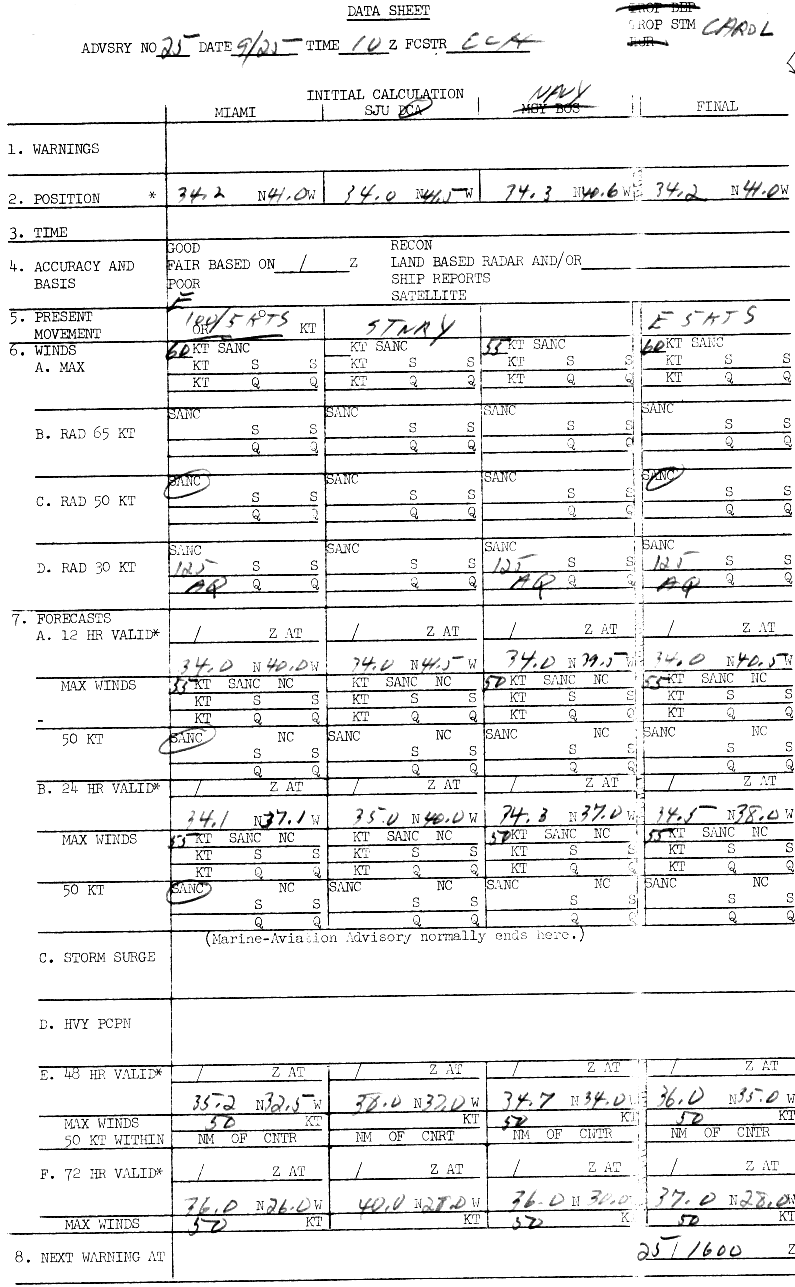 DATA SHEET
TROP DEP
TROP STM CAROL
HUR
ADVSRY NO 25 DATE 9/25 TIME 10 Z FCSTR
INITIAL CALCULATION
MIAMI SJU DCA NAVY MSY BOS FINAL
1. WARNINGS
2. POSITION * 34.2 N 41.0 W 34.0 N 41.5 W 34.3 N 40.6 W 34.2 N 41.0 W
3. TIME
4. ACCURACY AND BASIS
GOOD
FAIR BASED ON / Z
POOR
RECON
LAND BASED RADAR AND/OR
SHIP REPORTS
SATELLITE
5. PRESENT MOVEMENT E OR /5 KTS KT STNRY E 5 KTS
6. WINDS
A. MAX 60 KT SANC KT SANC 55 KT SANC 60 KT SANC
KT S S KT S S KT S S KT S S
KT Q Q KT Q Q KT Q Q KT Q Q
B. RAD 65 KT SANC SANC SANC SANC
S S S S S S S S
Q Q Q Q Q Q Q Q
C. RAD 50 KT SANC SANC SANC SANC
S S S S S S S S
Q Q Q Q Q Q Q Q
D. RAD 30 KT SANC SANC SANC SANC
125 S S S S 125 S S 125 S S
AQ Q Q Q Q AQ Q Q AQ Q Q
7. FORECASTS
A. 12 HR VALID* / Z AT / Z AT / Z AT / Z AT
34.0 N 40.0 W 34.0 N 41.5 W 34.0 N 39.5 W 34.0 N 40.5 W
MAX WINDS 55 KT SANC NC KT SANC NC 50 KT SANC NC 55 KT SANC NC
KT S S KT S S KT S S KT S S
KT Q Q KT Q Q KT Q Q KT Q Q
50 KT SANC NC SANC NC SANC NC SANC NC
S S S S S S S S
Q Q Q Q Q Q Q Q
B. 24 HR VALID* / Z AT / Z AT / Z AT / Z AT
34.1 N 37.1 W 35.0 N 40.0 W 34.3 N 37.0 W 34.5 N 38.0 W
MAX WINDS 55 KT SANC NC KT SANC NC 50 KT SANC NC 55 KT SANC NC
KT S S KT S S KT S S KT S S
KT Q Q KT Q Q KT Q Q KT Q Q
50 KT SANC NC SANC NC SANC NC SANC NC
S S S S S S S S
Q Q Q Q Q Q Q Q
(Marine-Aviation Advisory normally ends here.)
C. STORM SURGE
D. HVY PCPN
E. 48 HR VALID* / Z AT / Z AT / Z AT / Z AT
35.2 N 32.5 W 38.0 N 37.0 W 34.7 N 34.0 W 36.0 N 35.0 W
MAX WINDS 50 KT KT 50 KT 50 KT
50 KT WITHIN NM OF CNTR NM OF CNRT NM OF CNTR NM OF CNTR
F. 72 HR VALID* / Z AT / Z AT / Z AT / Z AT
36.0 N 26.0 W 40.0 N 28.0 W 36.0 N 30.0 37.0 N 28.0 W
MAX WINDS 50 KT KT 50 K 50 KT
8. NEXT WARNING AT 25/1600 Z